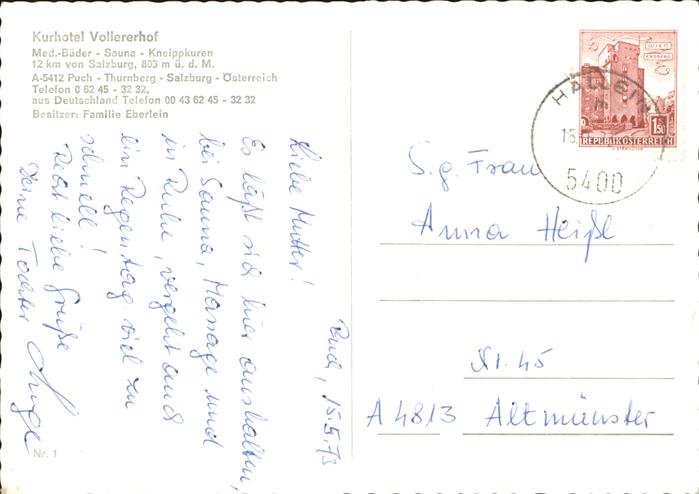 Kurhotel Vollererhof
Med.-Bäder - Sauna - Kneippkuren
12 km von Salzburg, 803 m ü. d. M.
A-5412 Puch - Thurnberg - Salzburg - Österreich
Telefon 0 62 45 - 32 32,
aus Deutschland Telefon 00 43 62 45 - 32 32
Besitzer: Familie Eberlein
Puch, 15.5.73
Liebe Mutter!
Es läßt sich hier aushalten,
bei Sauna, Massage und
in Ruhe, vergeht auch
ein Regentag viel zu
schnell!
Recht liebe Grüße
Deine Tochter Inge
Nr. 1
1.50
REPUBLIK ÖSTERREICH
HALLEIN
15.
5400
S.g. Frau
Anna Heißl
Nr. 45
A 4813 Altmünster